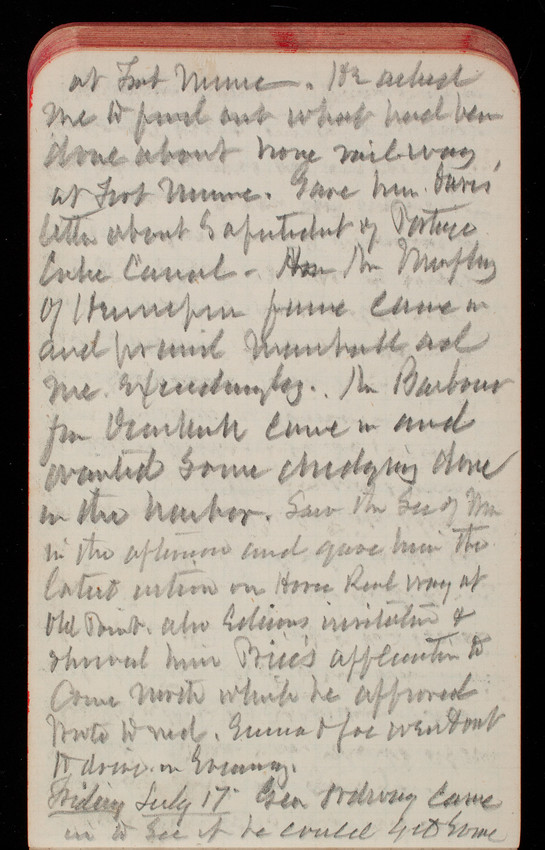 at Fort Monroe. He asked
me to find out what had been
done about horse railway
at Fort Monroe. Gave him Davis'
letter about Suptendent of Portage
Lake Canal - Mr Murphy
of Hennepin fame came in
and praised Marshall and
me exceedingly. Mr Barbour
from came in and
wanted some dredging done
in the harbor. Saw the Sec of War
in the afternoon and gave him the
latest action on Horse Rail way at
Old Point. also Edisons invitation &
showed him Price's application to
come north which he approved
Wrote to Ned. Emma & Joe went out
to drive in Evening.
Friday July 17 Gen Ordway came
in to see if he could get some